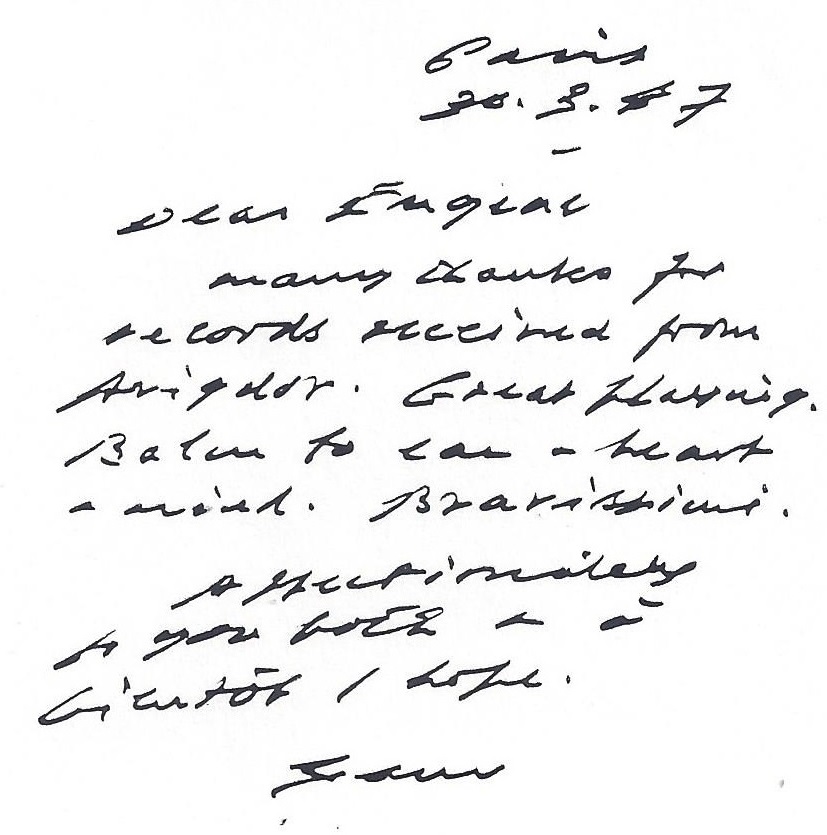 Paris
30. 3. 87
Dear Eugene
many thanks for
records received from
Avigdor. Great playing.
Balm to ear + heart
+ mind. Bravissimi.
Affectionately
to you both + à
bientôt I hope.
Sam